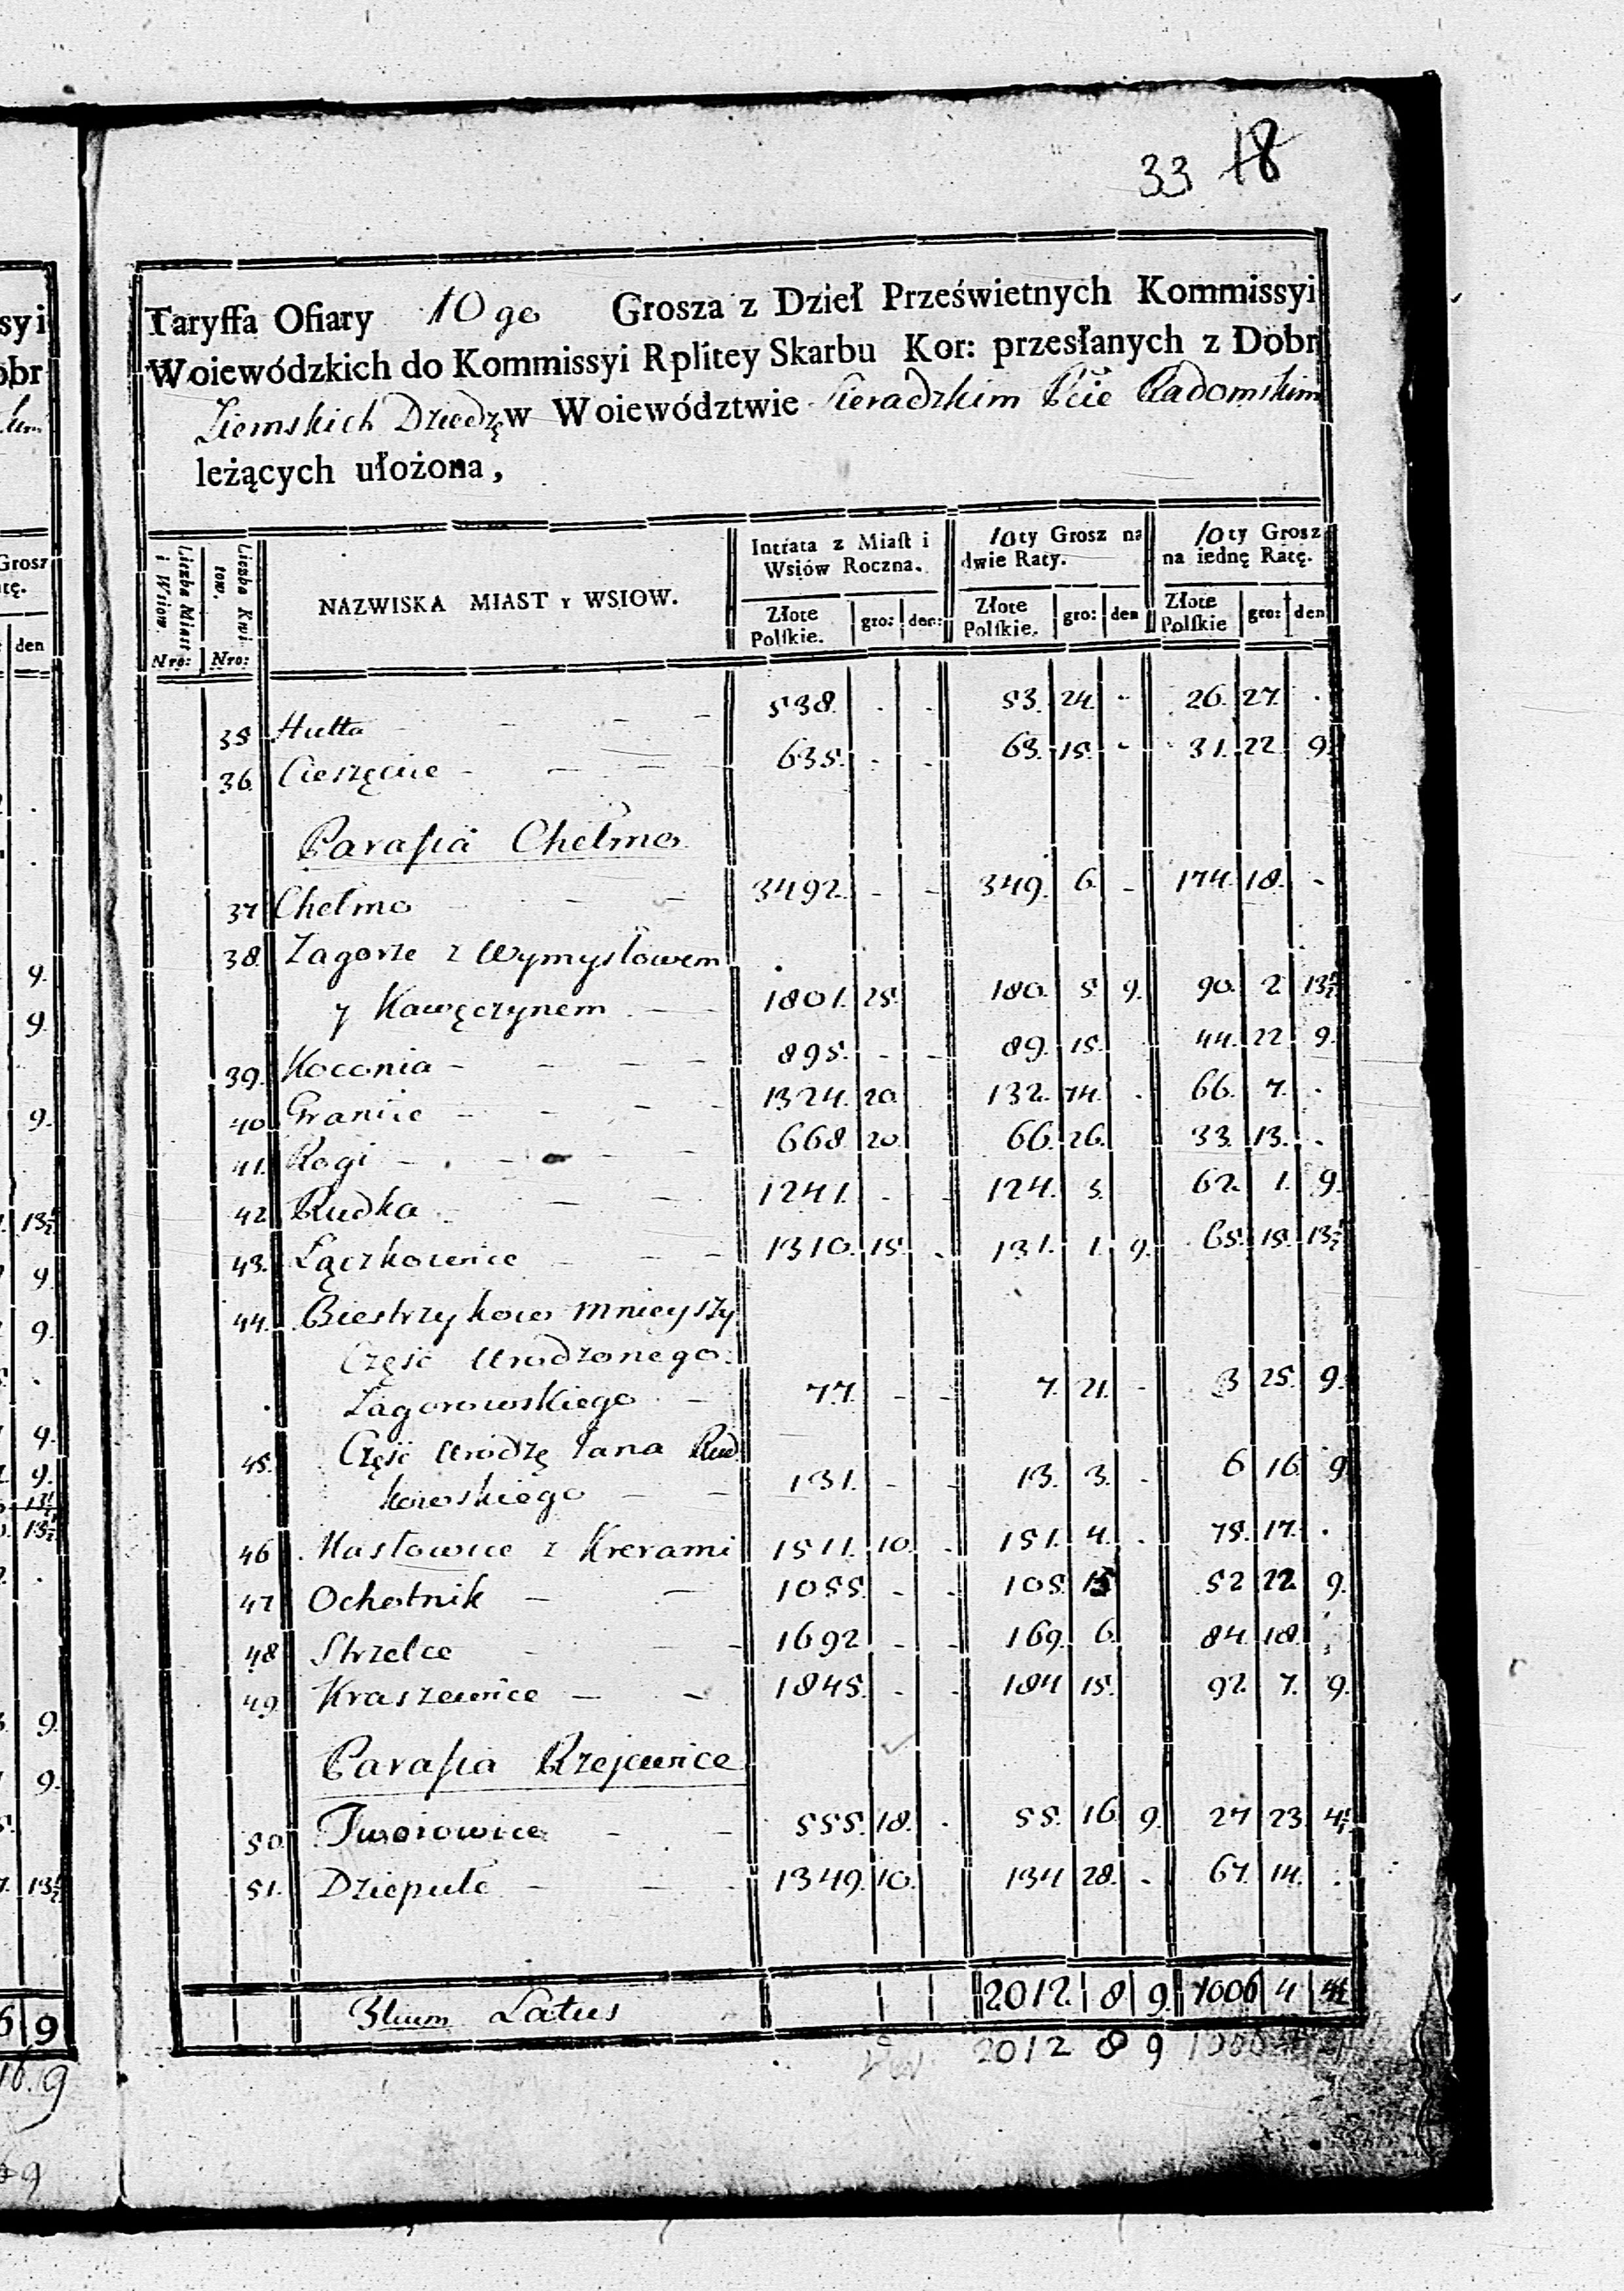 33 18
Taryffa Ofiary 10go Grosza z Dzieł Prześwietnych Kommissyi
Woiewódzkich do Kommissyi Rplitey Skarbu Kor: przesłanych z Dobr
Ziemskich Dziedzę w Woiewództwie Sieradzkim Pcie Radomskim
leżących ułożona,
Liczba Miast i Wsiow. Nro: Liczba Kwi- tow. Nro: NAZWISKA MIAST y WSIOW. Intrata z Miast i Wsiów Roczna. Złote Polskie. gro: den: 10ty Grosz na dwie Raty. Złote Polskie. gro: den 10ty Grosz na iednę Ratę. Złote Polskie gro: den
35 Hutta - - - 538. . . 53. 24. - 26. 27. .
36. Cieszęcice - - - 635. - - 63. 15. - 31. 22. 9.
Parafia Chełmo
37 Chełmo - - - 3492. - - 349. 6. - 174. 18. -
38. Zagorze z Wymysłowem
y Kawęczynem - - 1801. 25. 180. 5. 9. 90. 2. 13½
39. Koconia - - - 895. - - 89. 15. 44. 22. 9.
40 Granice - - - 1324. 20. 132. 14. . 66. 7. .
41. Rogi - - - 668. 20. 66. 26. 33. 13. .
42 Rudka - - - 1241. - - 124. 3. 62. 1. 9.
43. Łączkowice - - 1310. 15. . 131. 1. 9. 65. 15. 13½
44. Biestrzykow mnieyszy
Część Urodzonego
Zagorowskiego - 77. - - 7. 21. - 3 25. 9.
45. Część Urodzę Jana Rud
kowskiego - - 131. - - 13. 3. - 6 16. 9
46 Masłowice z Krerami 1511. 10. . 151. 4. . 75. 17. .
47 Ochotnik - - 1055. - - 105. 15 52 22. 9.
48 Strzelce - - - 1692 - - 169. 6. 84. 18. .
49 Kraszewice - - 1845. - - 184 15. 92. 7. 9.
Parafia Rzejowice
50. Tworowice - - 555. 18. . 55. 16. 9. 27 23. 4½
51. Dziepułc - - - 1349. 10. 134 28. - 67. 14. .
Latus 2012. 8 9. 1006 4 4½
2012 8 9